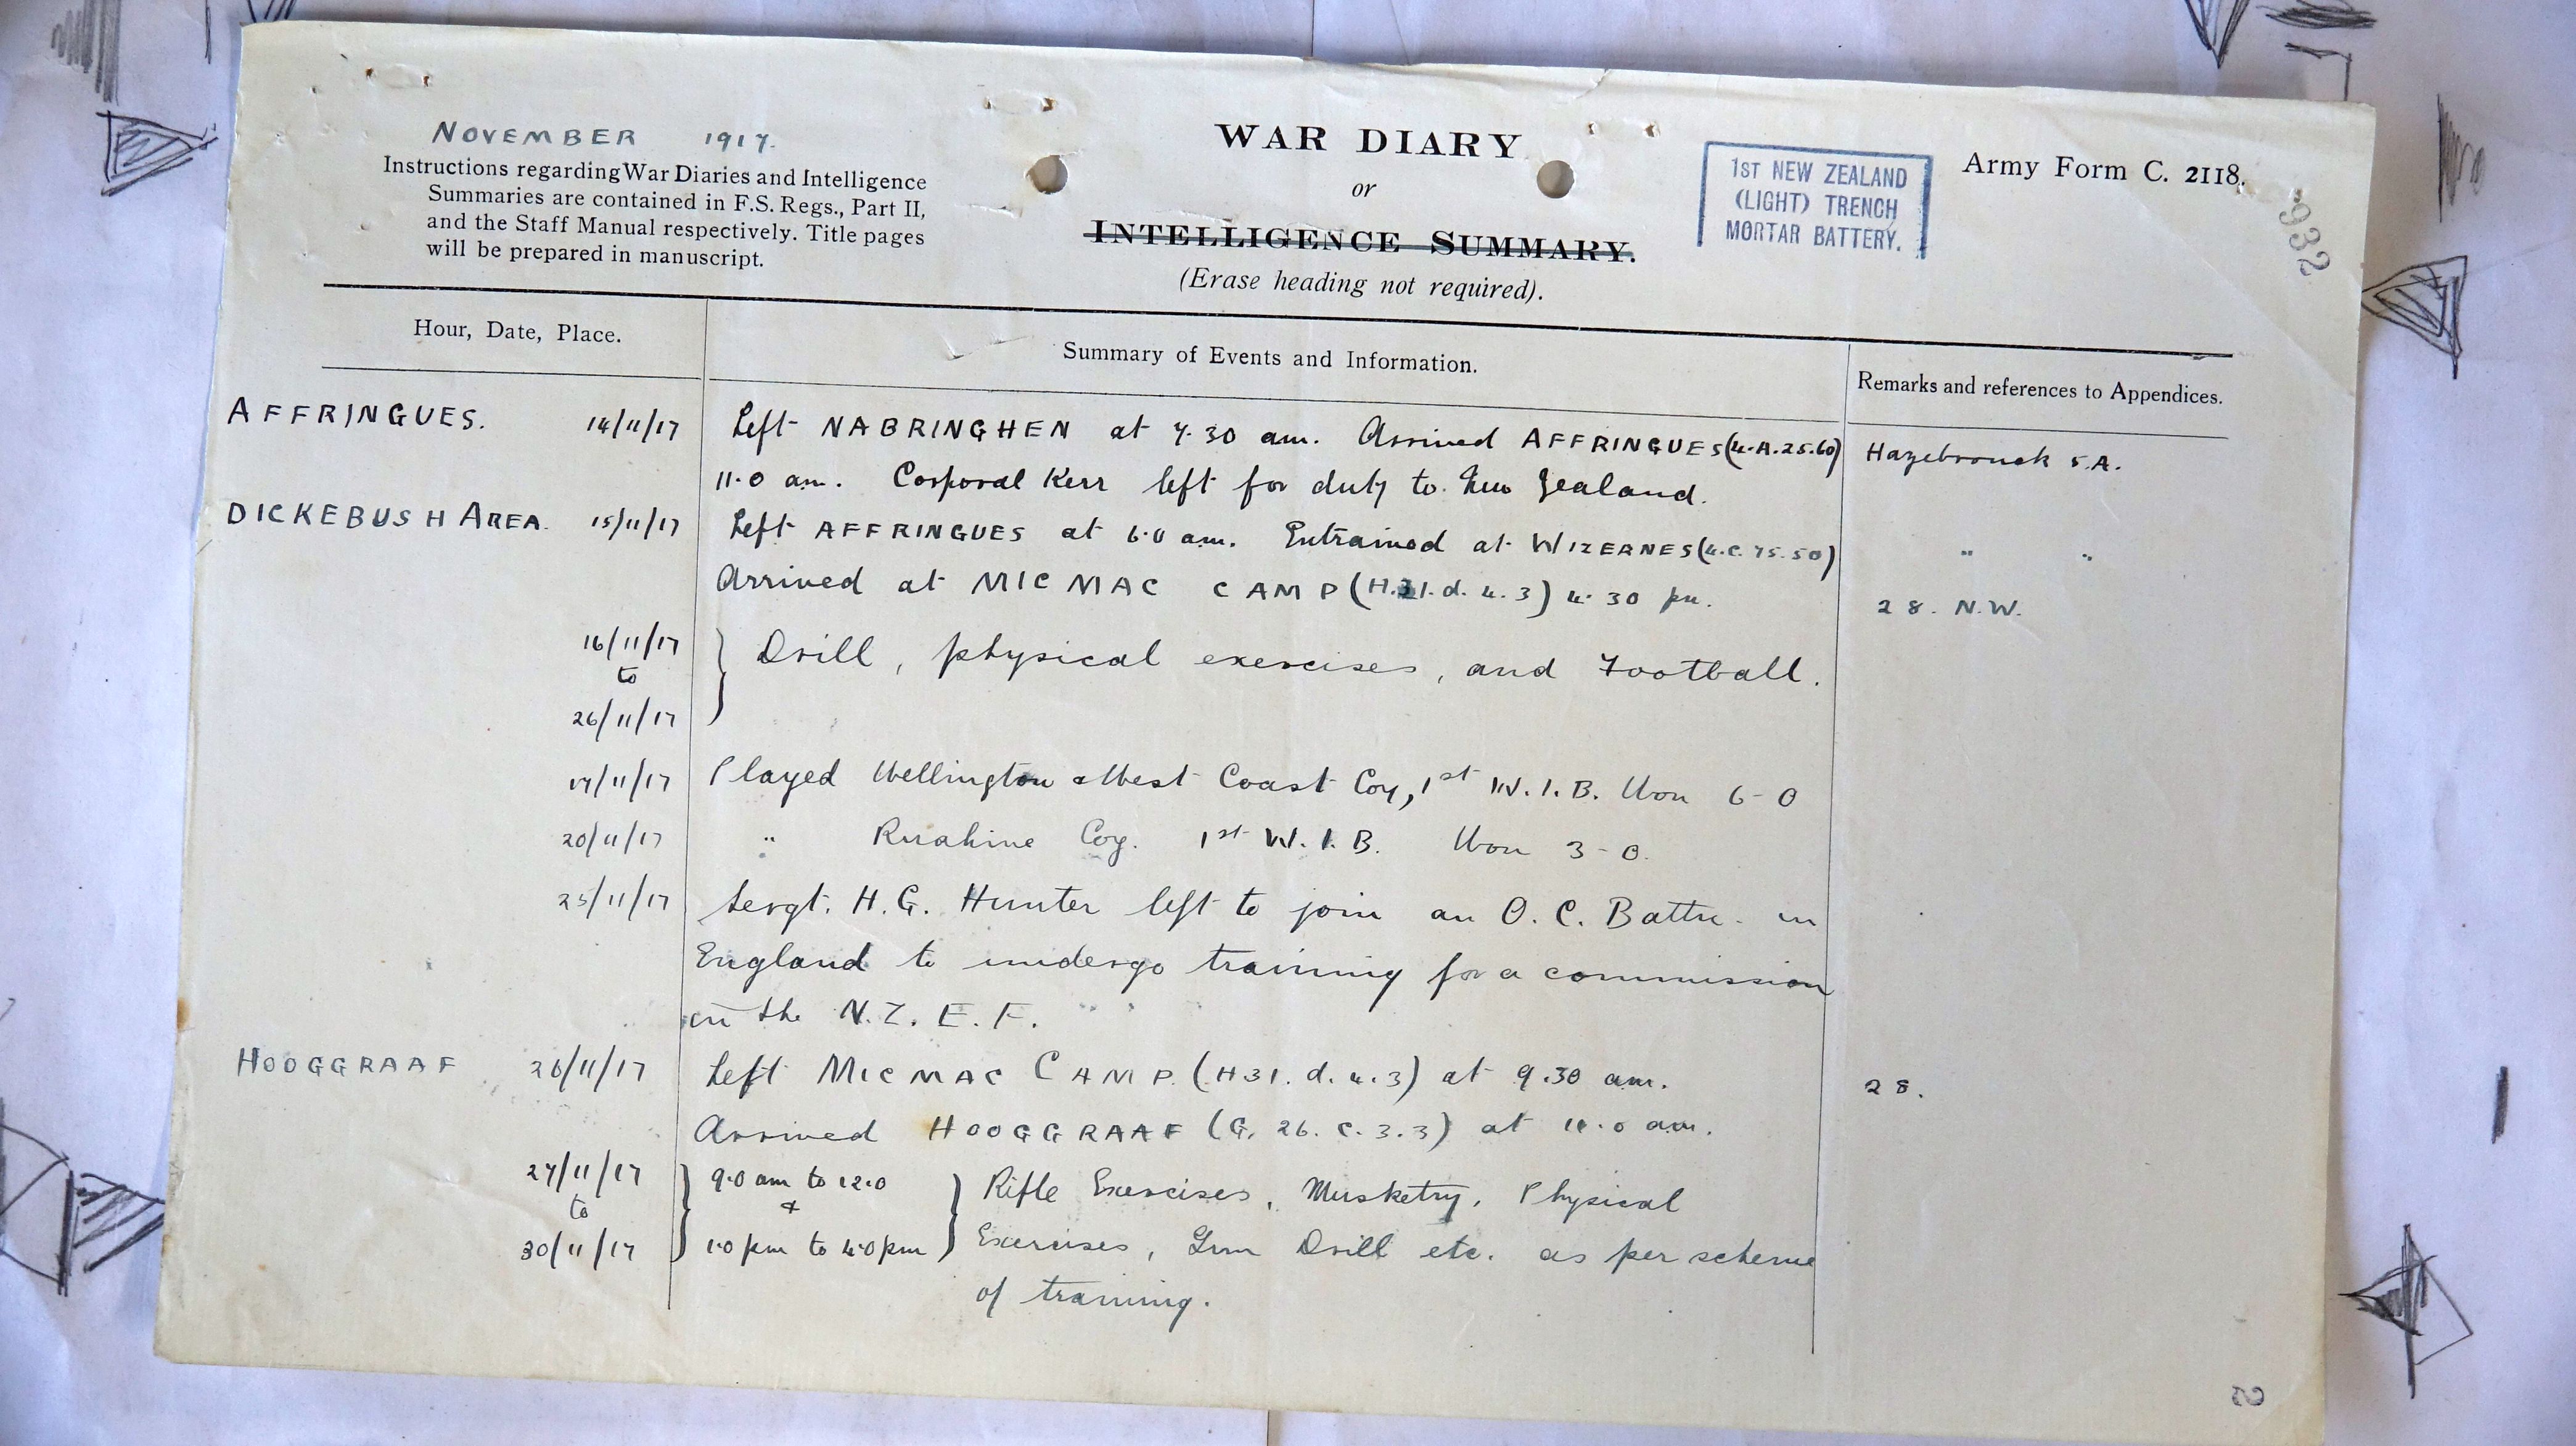 NOVEMBER 1917.
Instructions regarding War Diaries and Intelligence
Summaries are contained in F.S. Regs., Part II,
and the Staff Manual respectively. Title pages
will be prepared in manuscript.
WAR DIARY
or
INTELLIGENCE SUMMARY.
(Erase heading not required).
1ST NEW ZEALAND
(LIGHT) TRENCH
MORTAR BATTERY.
Army Form C. 2118.
932
Hour, Date, Place.
Summary of Events and Information.
Remarks and references to Appendices.
AFFRINGUES. 14/11/17 Left NABRINGHEN at 7.30 am. Arrived AFFRINGUES (4.A.25.60) Hazebrouck 5.A.
11.0 am. Corporal Kerr left for duty to New Zealand.
DICKEBUSH AREA. 15/11/17 Left AFFRINGUES at 6.0 am. Entrained at WIZERNES (4.C.75.50) " "
Arrived at MICMAC CAMP (H.31.d.4.3) 4.30 pm. 28. N.W.
16/11/17
to
26/11/17
Drill, physical exercises, and Football.
17/11/17 Played Wellington & West Coast Coy, 1st W.I.B. Won 6-0
20/11/17 " Ruahine Coy. 1st W.I.B. Won 3-0.
25/11/17 Sergt. H.G. Hunter left to join an O.C. Battn. in
England to undergo training for a commission
in the N.Z.E.F.
HOOGGRAAF 26/11/17 Left MICMAC CAMP (H31.d.4.3) at 9.30 am. 28.
Arrived HOOGGRAAF (G.26.c.3.3) at 11.0 am.
27/11/17
to
30/11/17
9.0 am to 12.0
&
1.0 pm to 4.0 pm
Rifle Exercises, Musketry, Physical
Exercises, Gun Drill etc. as per scheme
of training.